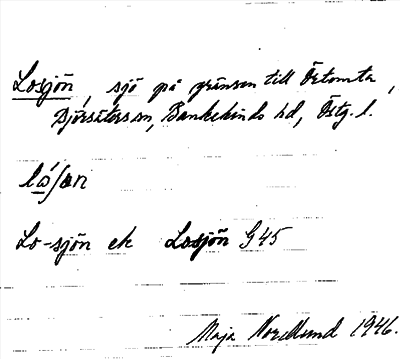 Losjön, sjö på gränsen till Örtomta,
Björsäters sn, Bankekinds hd, Östg. l.
ló̱ʃøn
Lo-sjön ek Losjön G45
Maja Nordlund 1946.